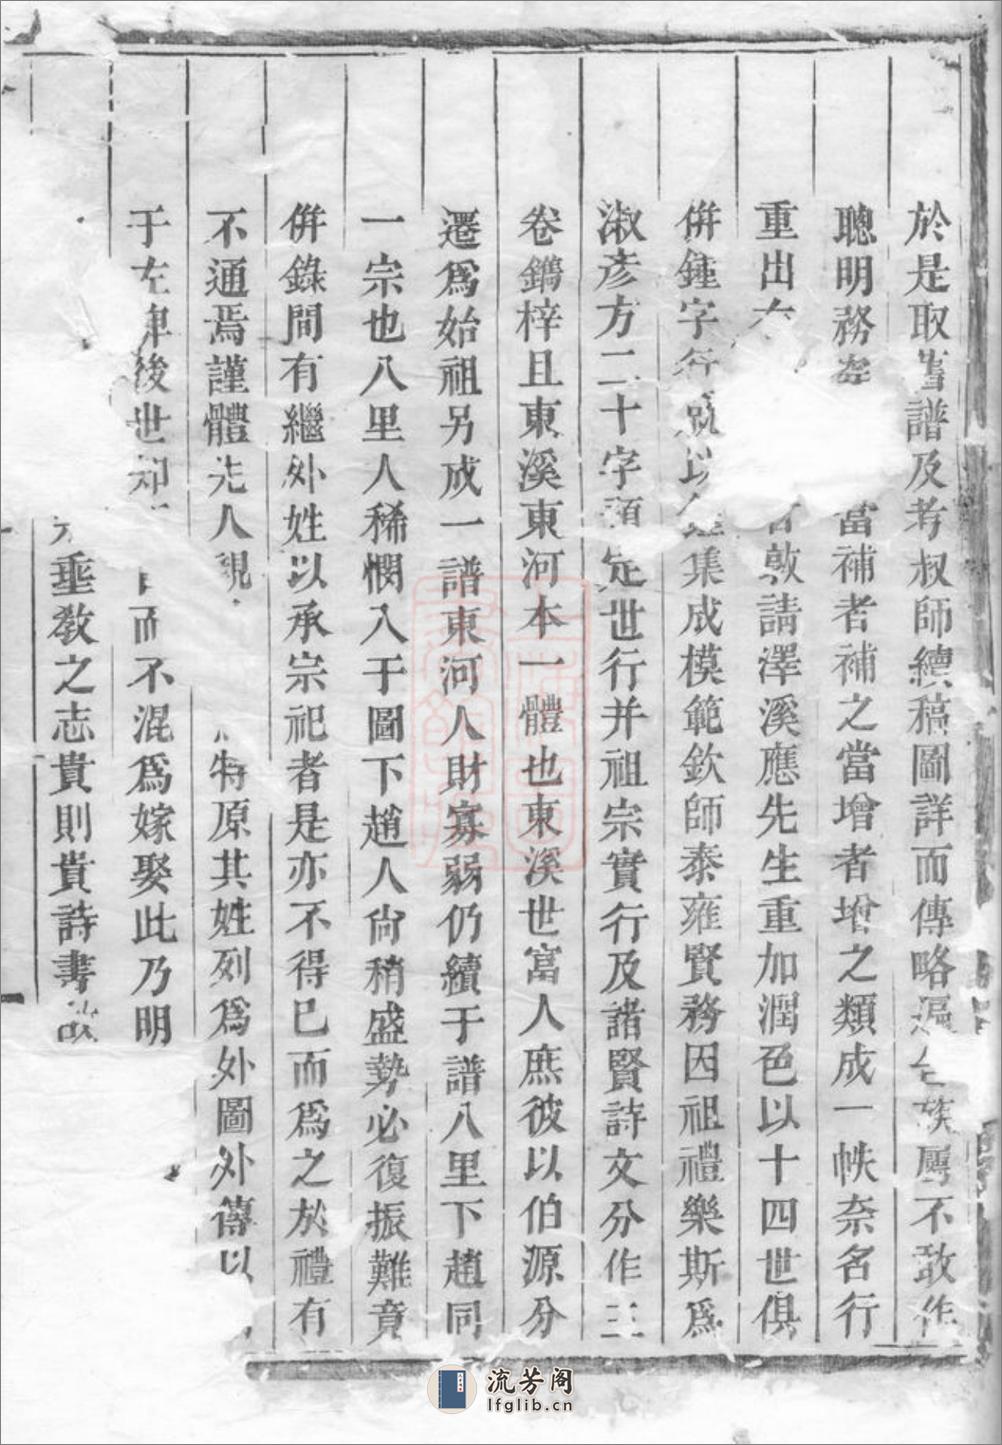 於是取舊譜及考叔師續稿圖詳而傳略遍 族 不敢作
聰明務 當補者補之當增者增之類成一帙奈名行
重出 敦請澤溪應先生重加潤色以十四世俱
併鍾字 以 集成模範欽師泰雍賢務因祖禮樂斯爲
淑彥方二十字預定世行并祖宗實行及諸賢詩文分作三
卷鐫梓且東溪東河本一體也東溪世富人庶彼以伯源分
遷爲始祖另成一譜東河人財寡弱仍續于譜八里下趙同
一宗也八里人稀憫入于圖下趙人尙稍盛勢必復振難竟
併錄間有繼外姓以承宗祀者是亦不得已而爲之於禮有
不通焉謹體先人 特原其姓列爲外圖外傳以
于左俾後世知 而不混爲嫁娶此乃明
垂教之志貴則貴詩書
流芳阁
lfglib.cn